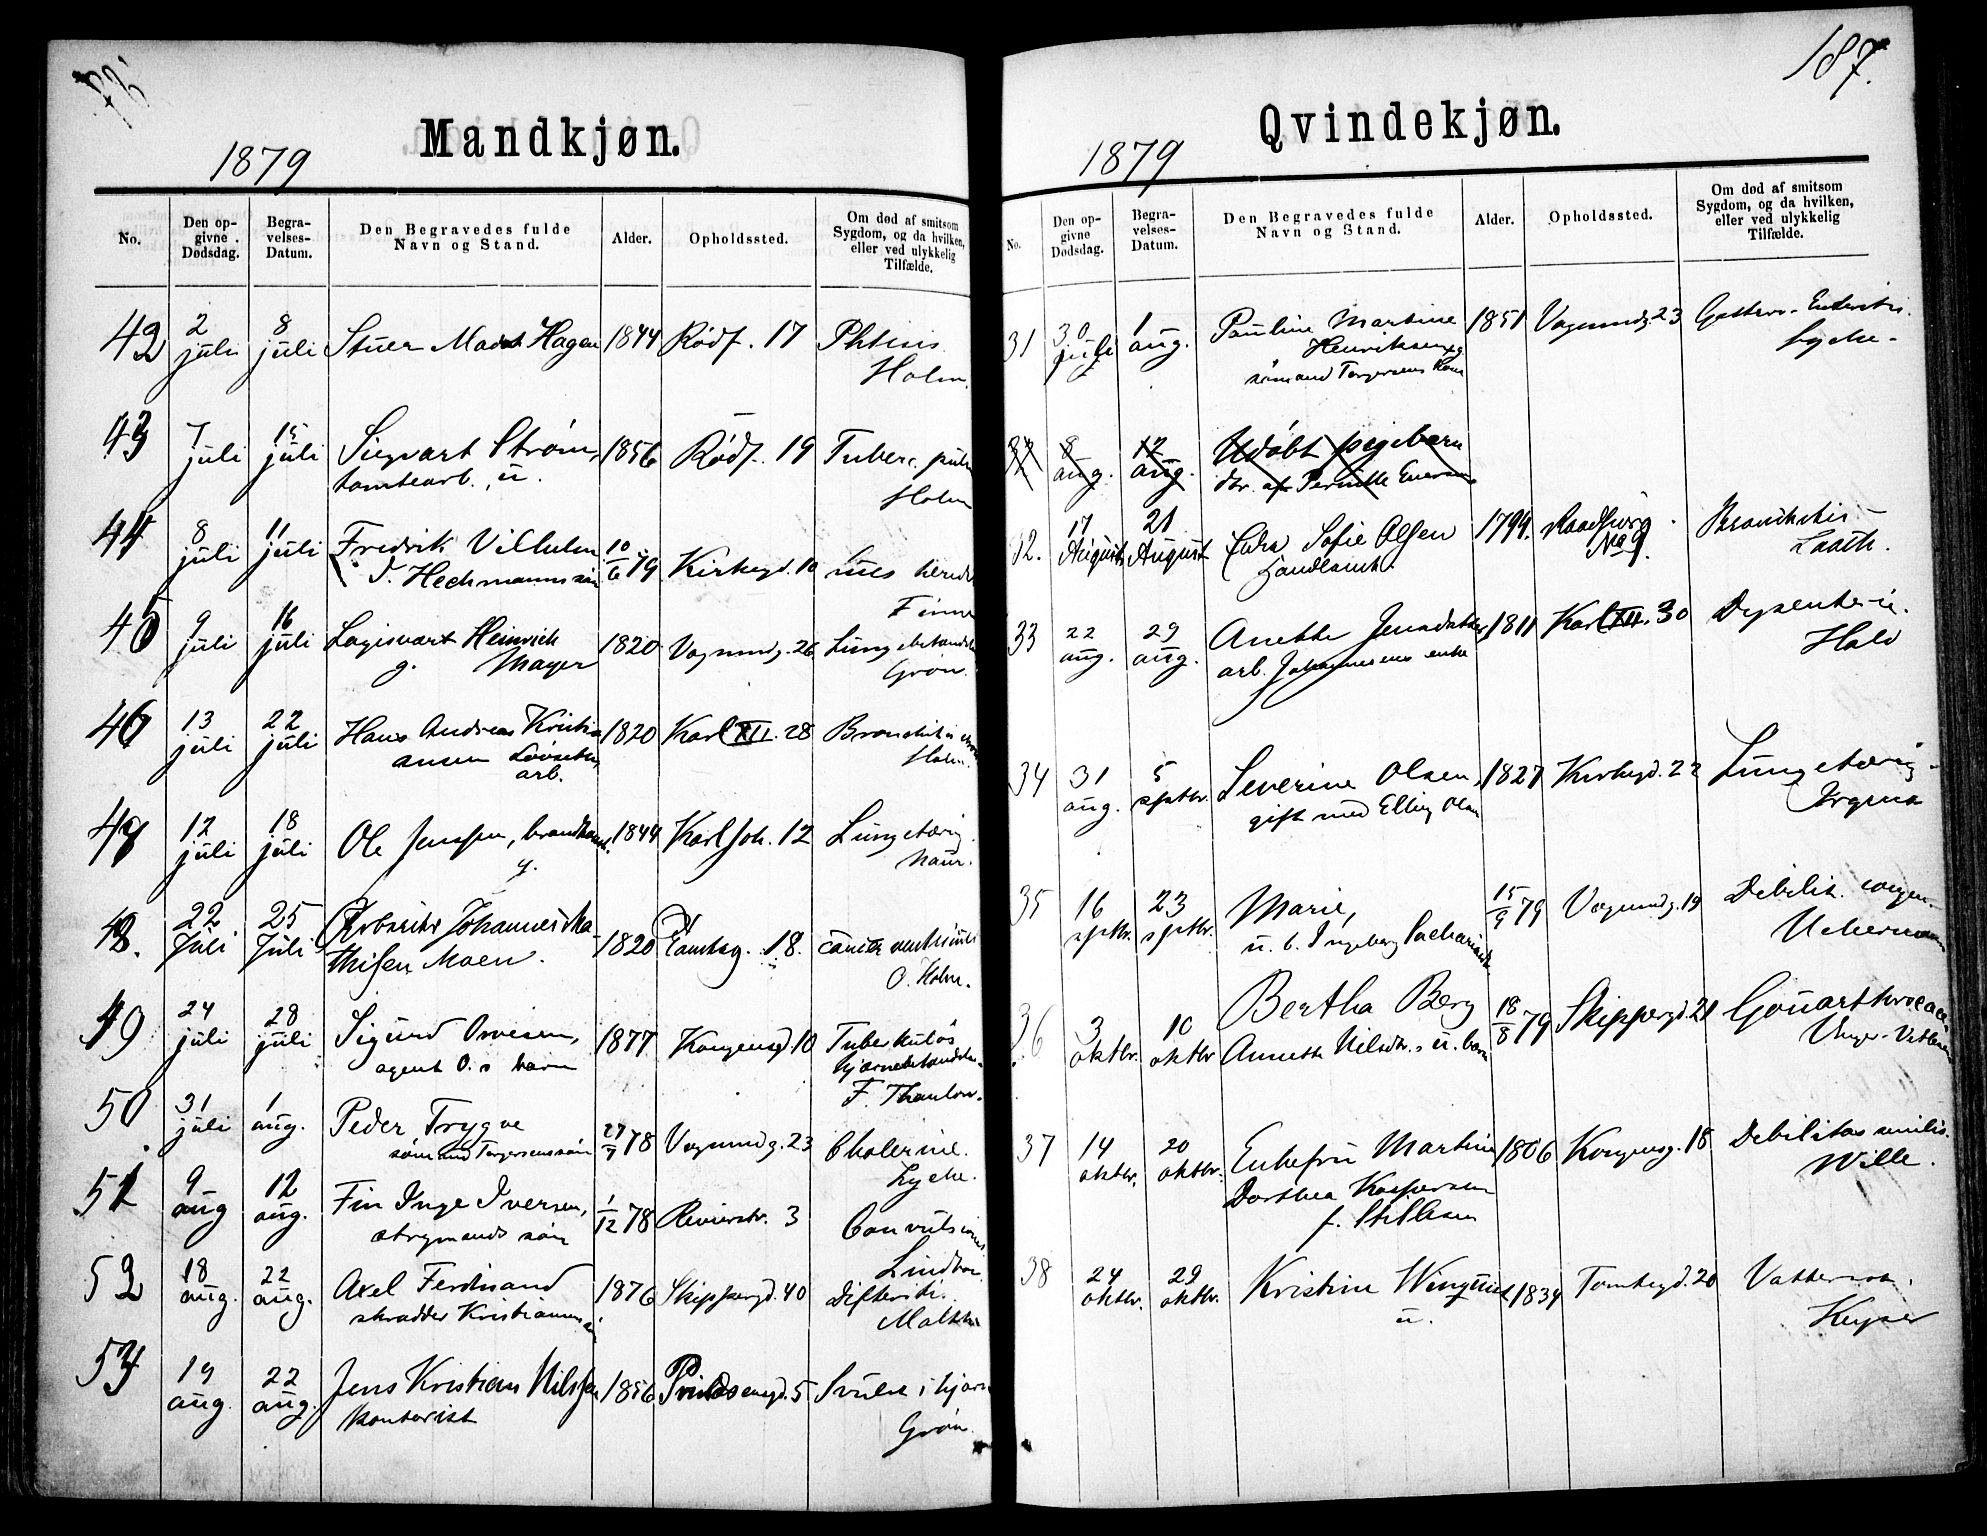 Mandkjøn.
1879
No.
Den opgivne Dødsdag.
Begravelses-Datum.
Den Begravedes fulde Navn og Stand.
Alder.
Opholdssted.
Om død af smitsom Sygdom, og da hvilken, eller ved ulykkelig Tilfælde.
42 2 juli 8 juli Stuer Hagen 1844 Rødf. 17
Holm
43 7 juli 15 juli Sigvart Strøm, 1856 Rødf. 19 Tuberc. pulm
tomtearb., u. Holm
44 8 juli 11 juli Fredrik Vilhelm 10/6 79 Kirkegd. 10
Heckmanns søn
45 9 juli 16 juli Heinrich 1820 Vognmdg. 26 Lungebetændelse
g. Mayer Grøn.
46 13 juli 22 juli Hans Andreas Kristi 1820 Karl XII. 28 Bronchitis
ansen arb. Holm.
47 12 juli 18 juli Ole Jenssen, 1844 Karl Joh. 12 Lungetæring
g.
48. 22 Juli 25 Juli Johannes Ma 1820 Tomteg. 18. cancer ventriculi
thisen Moen. O. Holm.
49 24 juli 28 juli Sigurd 1877 Kongensgd 10 Tuberkuløs
agent O.s barn hjernebetændelse
F. Thaulow.
50 31 juli 1 aug. Peder Trygve 78 Vognmandg. 23 Cholerine.
sømand Torgersens søn Lyche.
51 9 aug 12 aug. Fin Inge Iversen, 1/12 78 Revierstr. 3 Convulsiones
styrmands søn
52 18 aug. 22 aug. Axel Ferdinand 1876 Skippergd. 40 Difteriti.
skrædder Kristiansens
53 19 aug. 22 aug. Jens Kristian Nilssen 1856 Prindsensgd. 5 Svulst i hjern
kontorist Grøn.
187.
Qvindekjøn.
1879
No.
Den opgivne Dødsdag.
Begravelses-Datum.
Den Begravedes fulde Navn og Stand.
Alder.
Opholdssted.
Om død af smitsom Sygdom, og da hvilken, eller ved ulykkelig Tilfælde.
31 30 juli 1 aug. Pauline Martine 1851 Vognmndg. 23
Henriksen g. Lyche.
sømand Torgersens kone
8 aug. 12 aug. Udøbt pigebarn
dtr. af Pernille
32. 17 August 21 August Sofie Olsen 1799. No 9. Bronkitis
33 22 aug. 29 aug. Anette 1811 Karl XII. 30 Dysenteri.
arb. Johannesens enke Hald
34 31 aug. 5 septbr. Severine Olsen, 1827 Kirkegd. 22 Lungetæring
gift med Elling Olsen
35 16 septbr. 23 septbr. Marie, 15/9 79 Vognmndg. 19 Debilit. congen.
u. b. Ingeborg Uchermann
36 3 oktbr. 10 oktbr Bertha Berg 18/8 79 Skippergd. 21
Annette Nilsdtr.s u. barn
37 14 oktbr. 20 oktbr. Enkefru Martine 1806 Kongensg. 18 Debilitas senilis.
Dorthea Kaspersen Wille.
38 24 oktbr. 29 oktbr. Kristine 1834 Tomtegd. 20 Vattersot.
u. Keyser